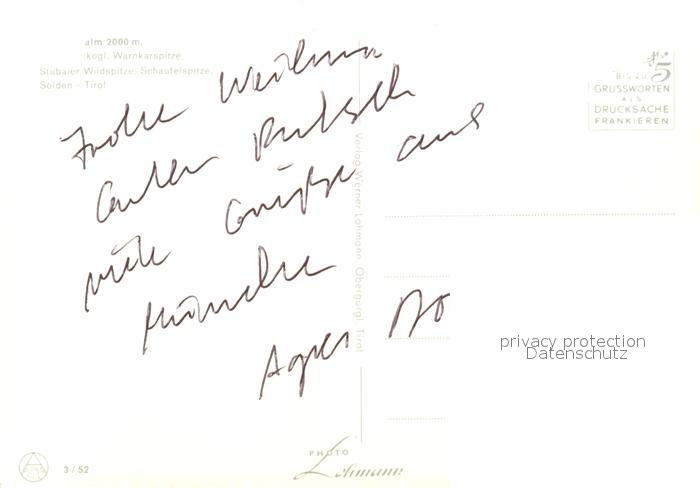 alm 2000 m,
kogl, Warnkarspitze,
Stubaier Wildspitze, Schaufelspitze,
Sölden - Tirol
Frohe Weihna
Guten Rutsch
viele Grüße aus
München
Agnes Do
BIS ZU 5
GRUSSWORTEN
ALS
DRUCKSACHE
FRANKIEREN
Verlag Werner Lohmann Obergurgl Tirol
privacy protection
Datenschutz
3/52
PHOTO
Lohmann